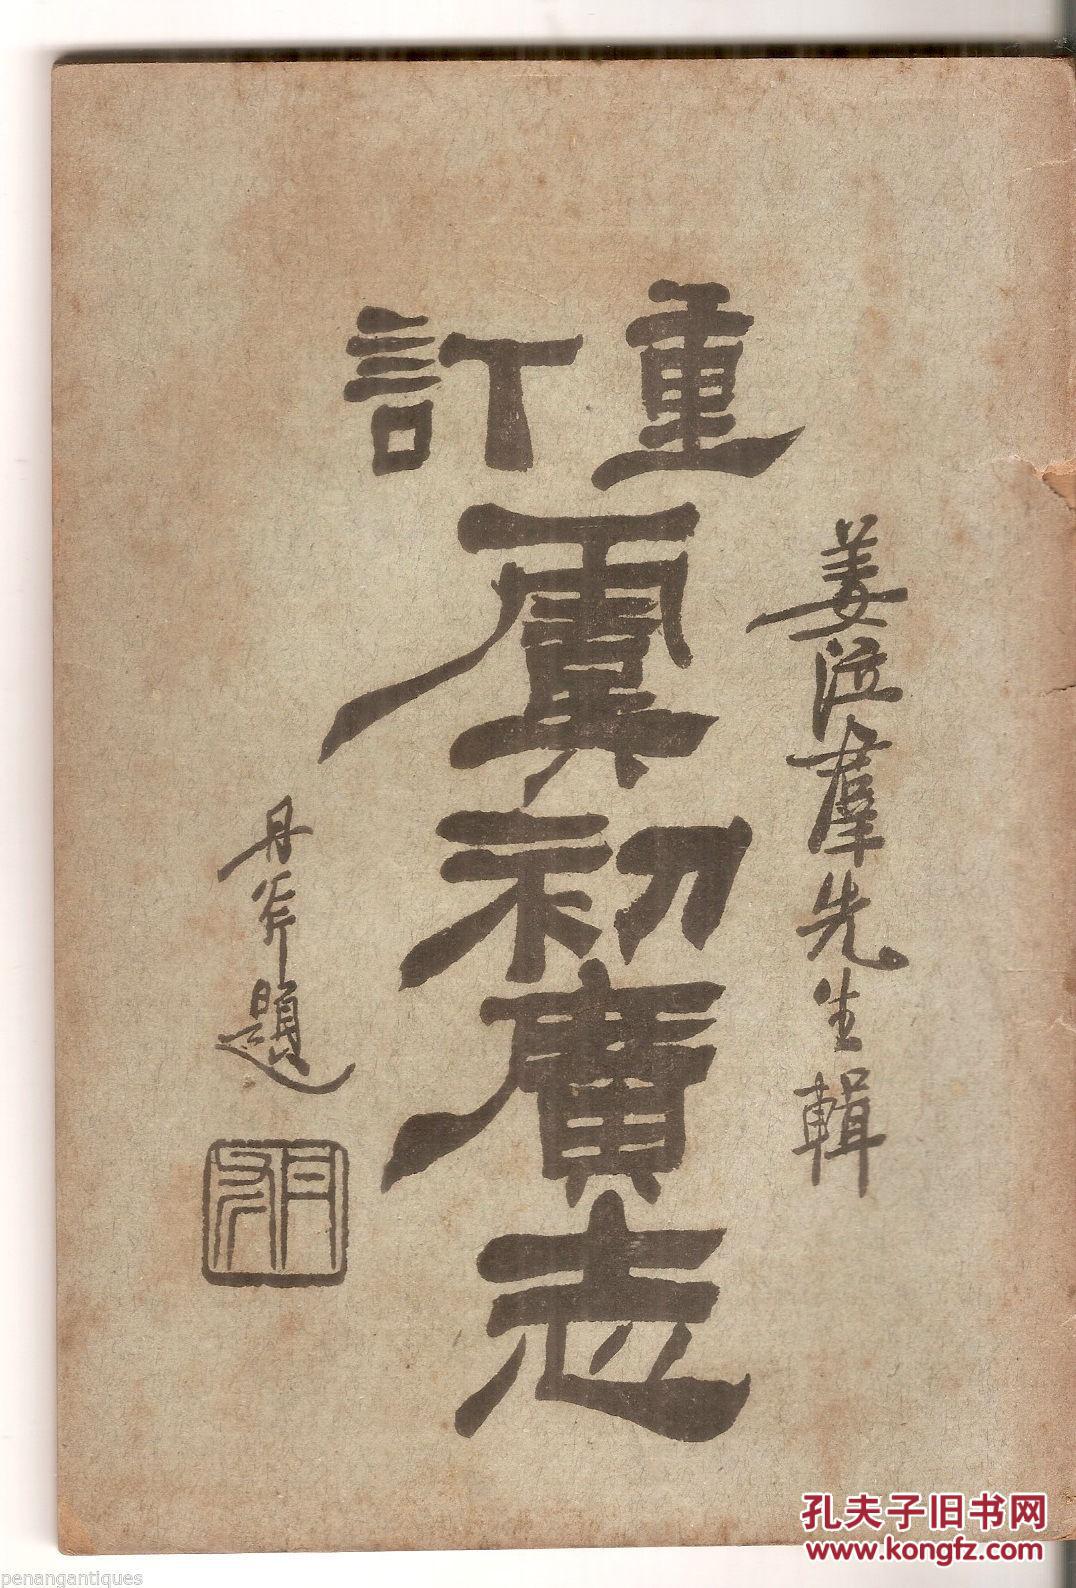 重訂
虞初廣志
姜泣羣先生輯
丹斧題
孔夫子旧书网
www.kongfz.com
penangantiques